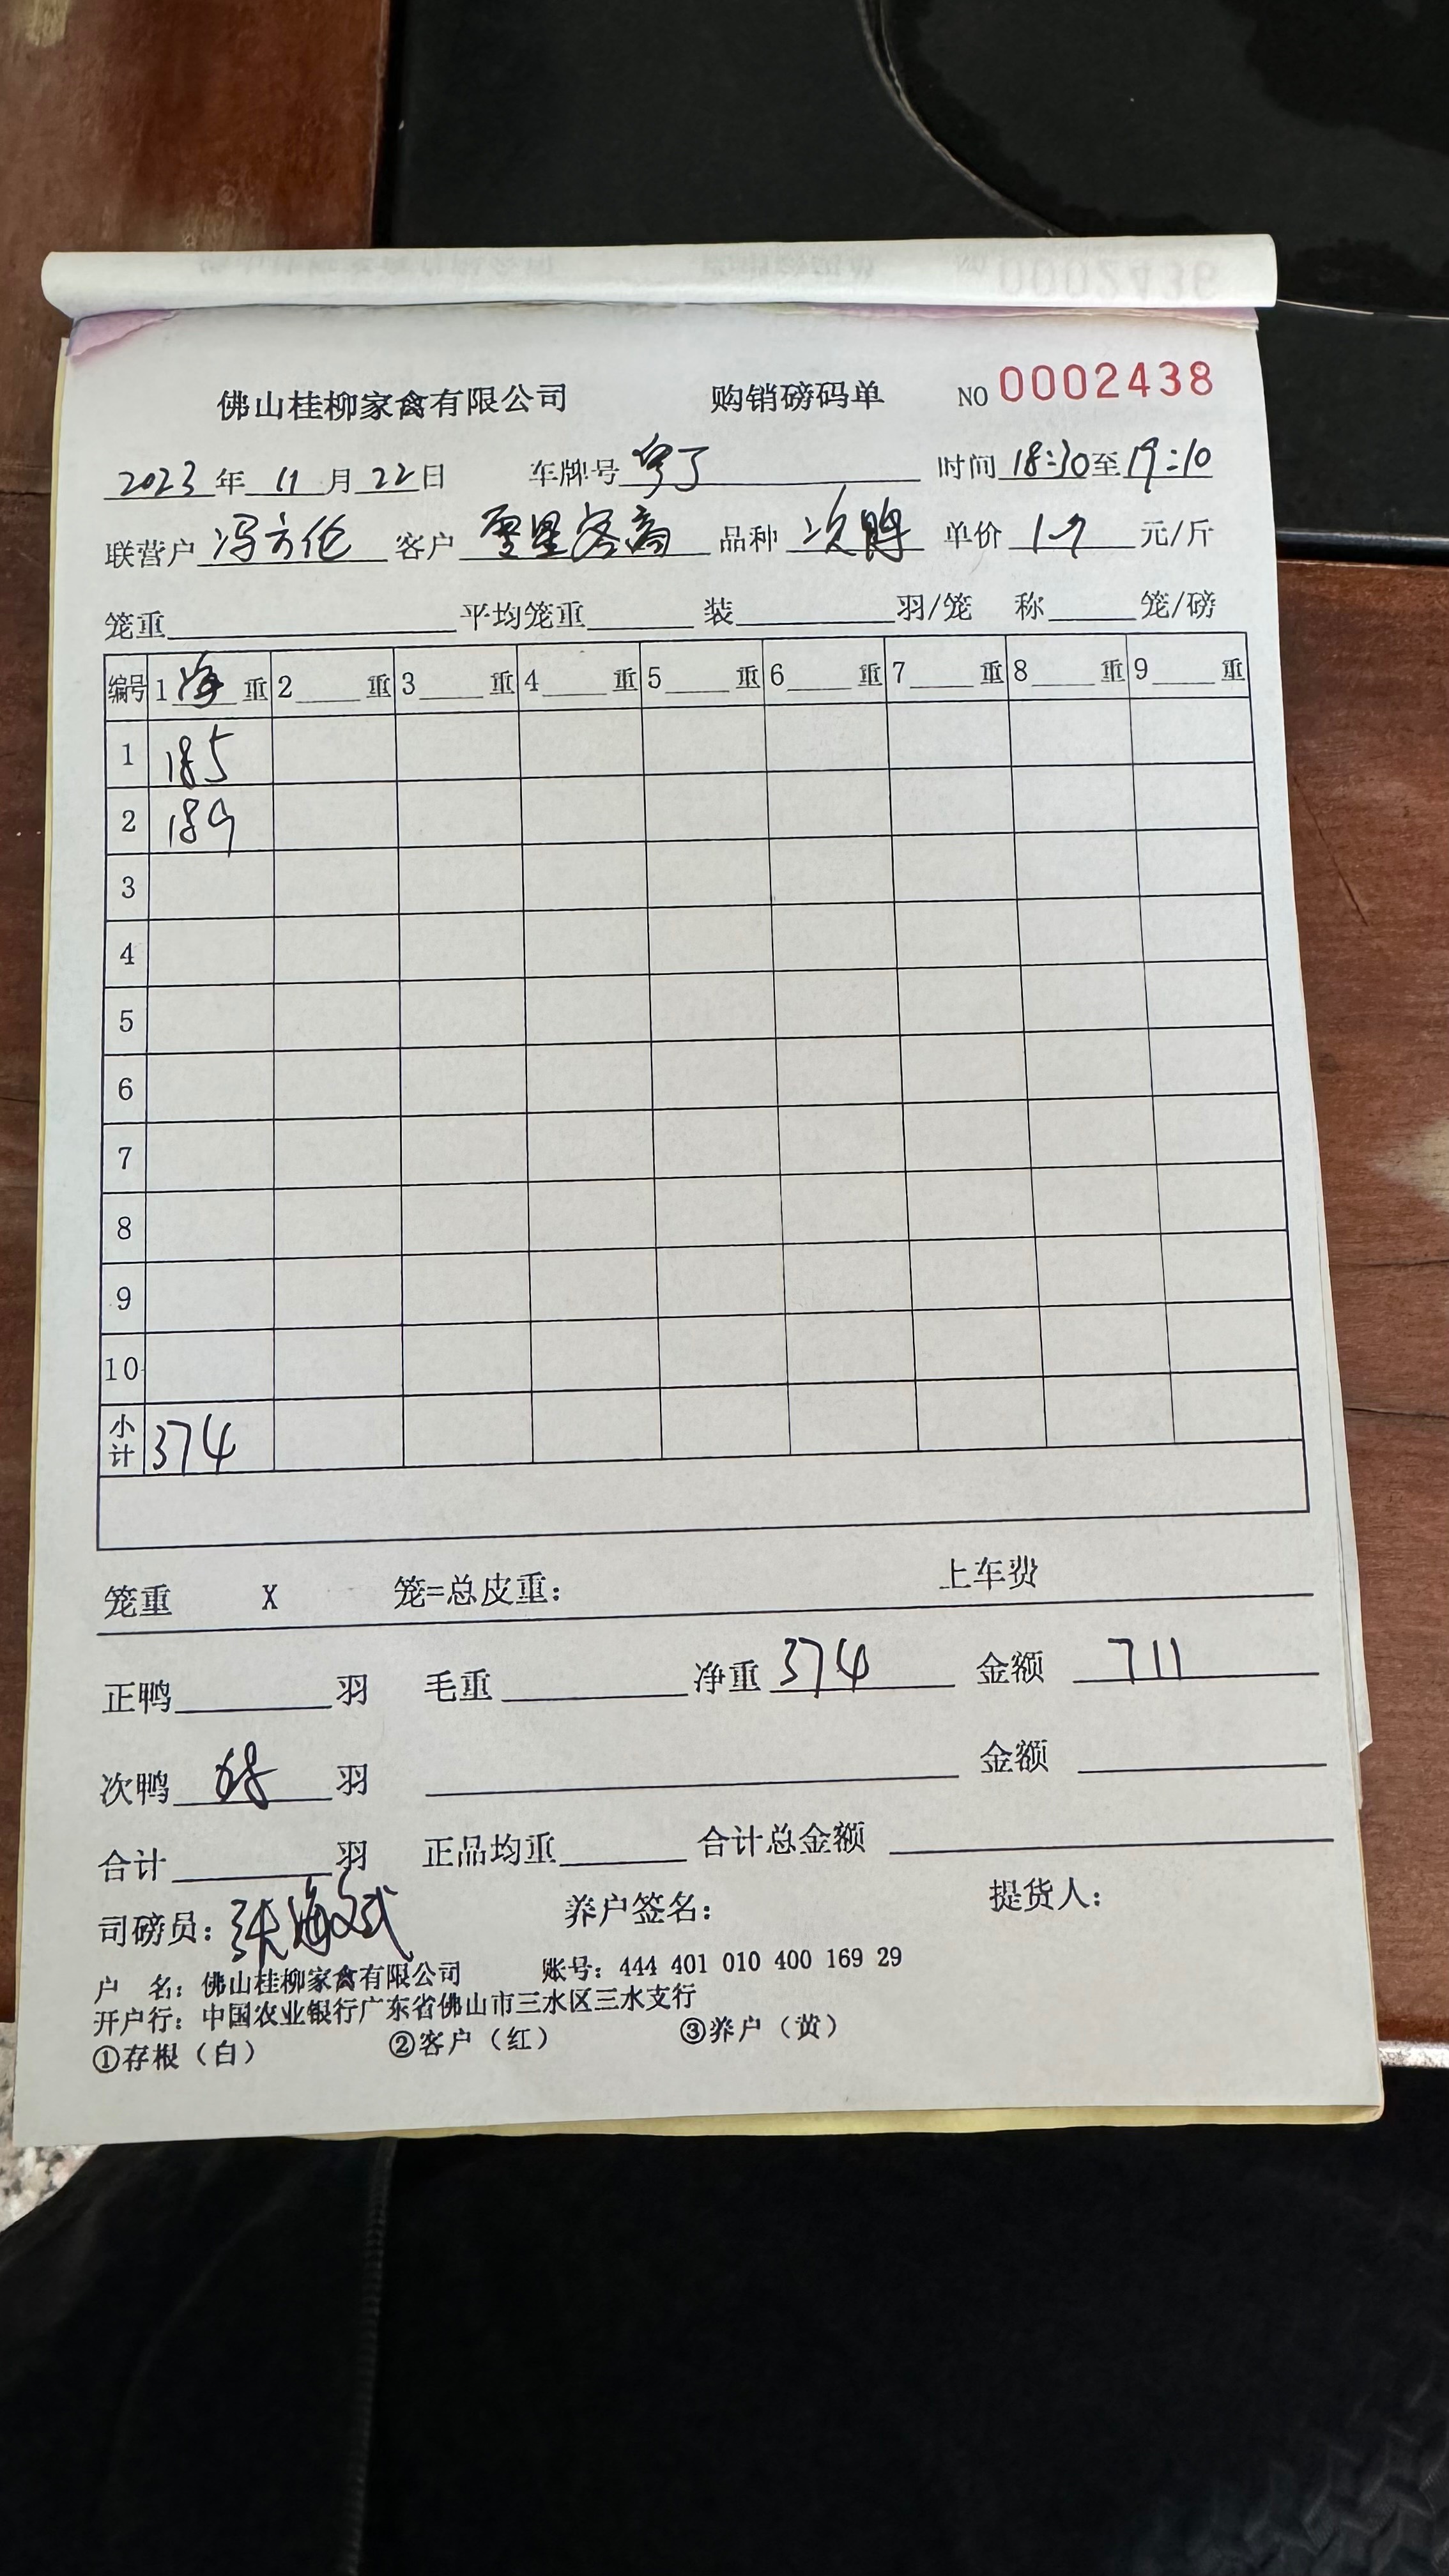 佛山桂柳家禽有限公司 购销磅码单 NO 0002438
2023年11月22日 车牌号 时间18:30至19:10
联营户 冯方伦 客户 品种 次鸭 单价 元/斤
笼重 平均笼重 装 羽/笼 称 笼/磅
编号 1 净 重 2 重 3 重 4 重 5 重 6 重 7 重 8 重 9 重
1 185
2 189
3
4
5
6
7
8
9
10
小计 374
笼重 X 笼=总皮重： 上车费
正鸭 羽 毛重 净重 374 金额 711
次鸭 68 羽 金额
合计 羽 正品均重 合计总金额
司磅员：张海斌 养户签名： 提货人：
户 名：佛山桂柳家禽有限公司 账号：444 401 010 400 169 29
开户行：中国农业银行广东省佛山市三水区三水支行
①存根（白） ②客户（红） ③养户（黄）